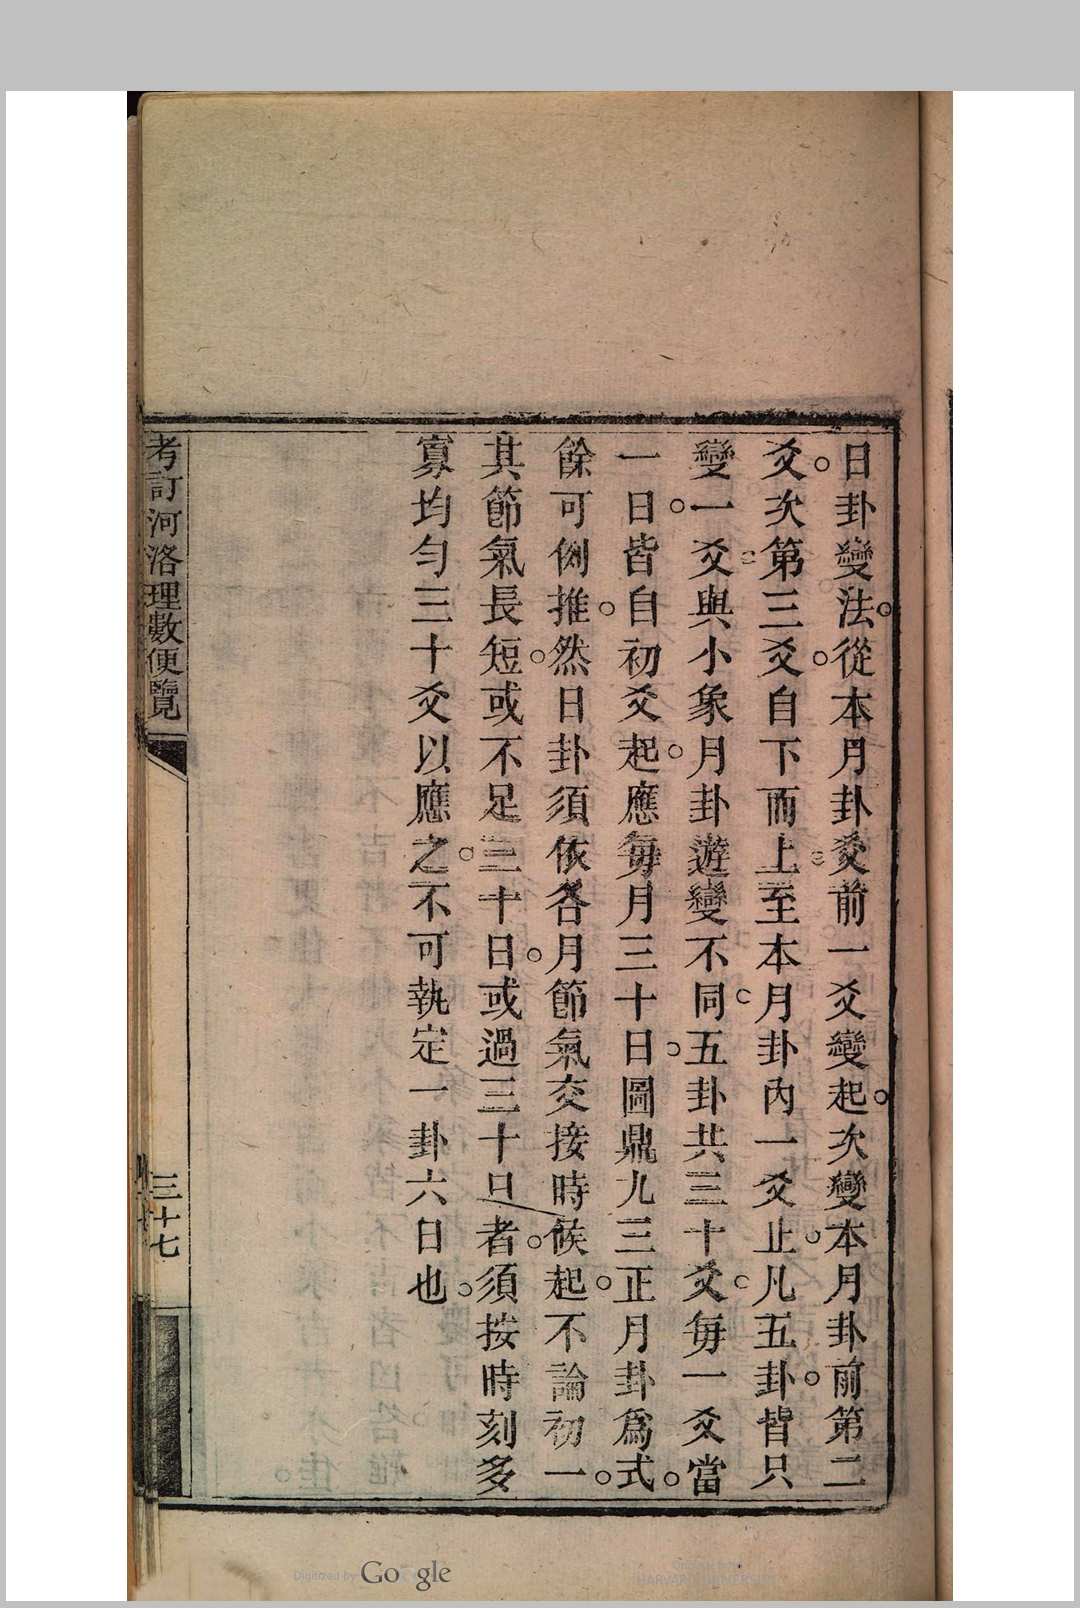 日卦變法從本月卦爻前一爻變起次變本月卦前第二
爻次第三爻自下而上至本月卦內一爻止凡五卦皆只
變一爻與小象月卦遊變不同五卦共三十爻每一爻當
一日皆自初爻起應每月三十日圖鼎九三正月卦爲式
餘可例推然日卦須依各月節氣交接時候起不論初一
其節氣長短或不足三十日或過三十日者須按時刻多
寡均勻三十爻以應之不可執定一卦六日也
考訂河洛理數便覽
三十七
Digitized by Google
Original from
HARVARD UNIVERSITY